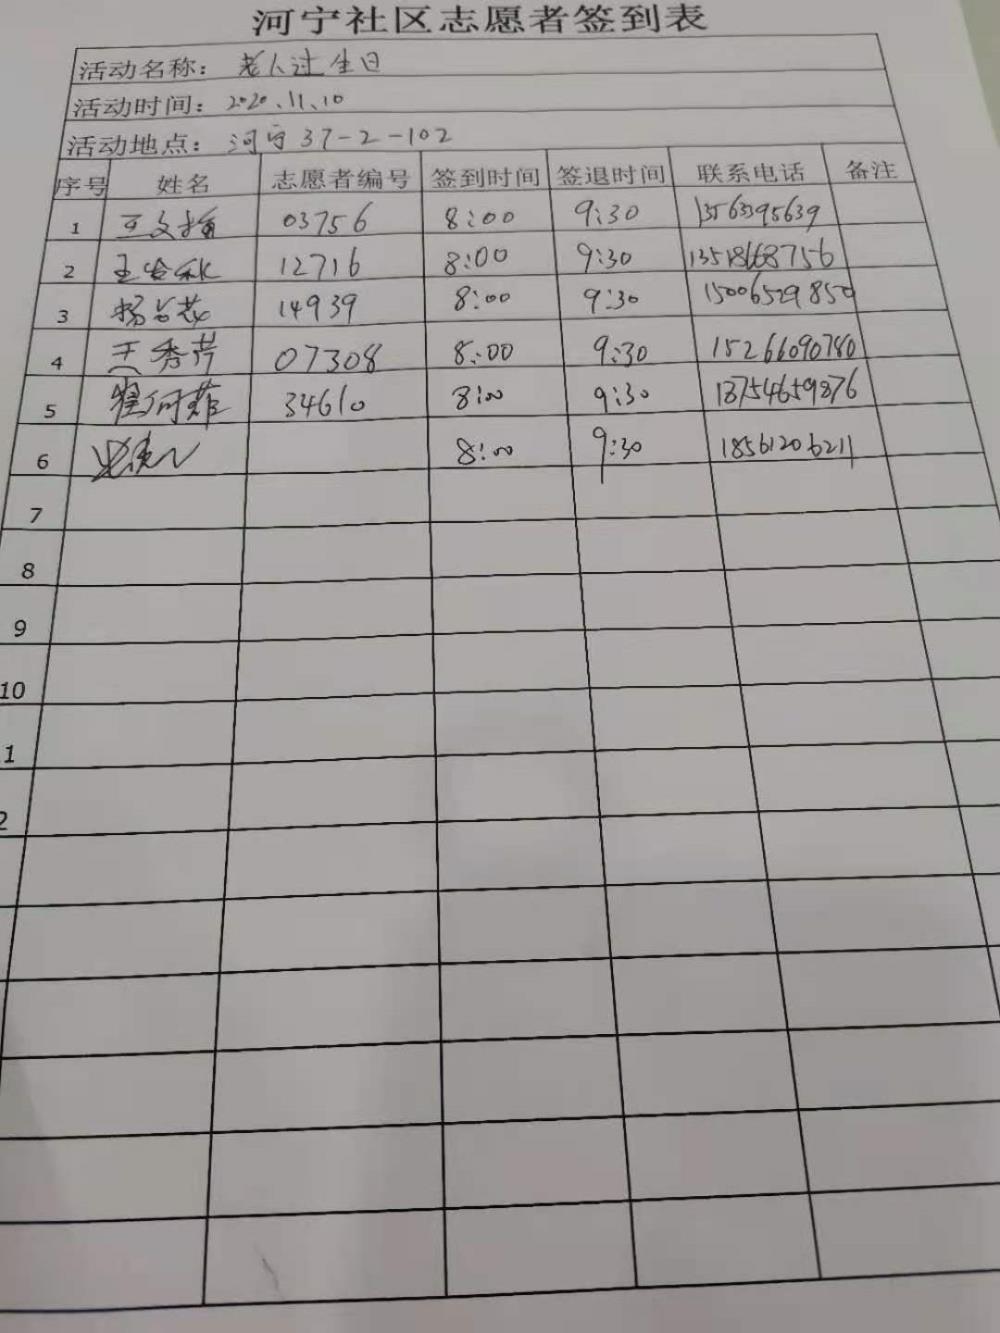 河宁社区志愿者签到表
活动名称：老人过生日
活动时间：2020.11.10
活动地点：河宁37-2-102
序号 姓名 志愿者编号 签到时间 签退时间 联系电话 备注
1 王文梅 03756 8:00 9:30 13563395639
2 王 秋 12716 8:00 9:30 13518668756
3 杨 14939 8:00 9:30 15006529850
4 王秀芹 07308 8:00 9:30 15266090780
5 翟何菲 34610 8:00 9:30 18754659876
6 8:00 9:30 18561206211
7
8
9
10
1
2